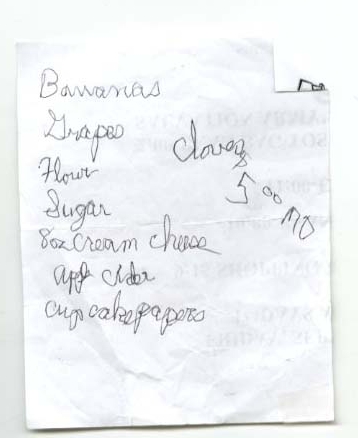 Bananas
Grapes
Flour
Sugar
8oz cream cheese
appl cider
cupcake papers
cloves
5 00